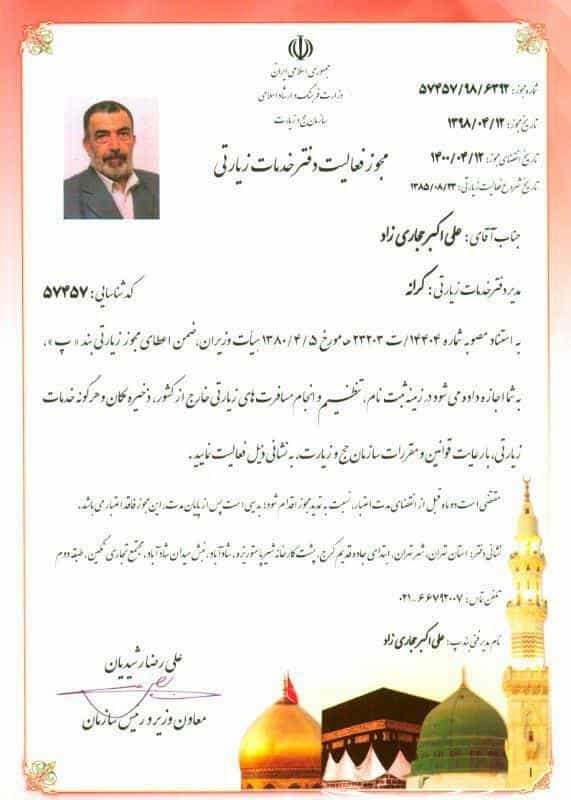 جمهوری اسلامی ایران
وزارت فرهنگ و ارشاد اسلامی
سازمان حج و زیارت
شماره مجوز: ۵۷۴۵۷/۹۸/۶۳۹۲
تاریخ مجوز: ۱۳۹۸/۰۴/۱۲
تاریخ انقضای مجوز: ۱۴۰۰/۰۴/۱۲
تاریخ شروع فعالیت زیارتی: ۱۳۸۵/۰۸/۲۳
مجوز فعالیت دفتر خدمات زیارتی
جناب آقای: علی اکبر حجاری زاد
مدیر دفتر خدمات زیارتی: کرانه
کد شناسایی: ۵۷۴۵۷
به استناد مصوبه شماره ۱۴۴۰۴/ت ۲۳۲۰۳ ه مورخ ۱۳۸۰/۴/۵ هیأت وزیران، ضمن اعطای مجوز زیارتی بند « پ »،
به شما اجازه داده می شود در زمینه ثبت نام، تنظیم و انجام مسافرت های زیارتی خارج از کشور، ذخیره مکان و هرگونه خدمات
زیارتی، با رعایت قوانین و مقررات سازمان حج و زیارت، به نشانی ذیل فعالیت نمایید.
مقتضی است دو ماه قبل از انقضای مدت اعتبار، نسبت به تمدید مجوز اقدام شود؛ بدیهی است پس از پایان مدت، این مجوز فاقد اعتبار می باشد.
نشانی دفتر: استان تهران، شهر تهران، ابتدای جاده قدیم کرج، پشت کارخانه شیر پاستوریزه، شادآباد، نبش میدان شادآباد، مجتمع تجاری نگین، طبقه دوم
تلفن تماس: ۶۶۷۹۲۰۰۷...۰۲۱
نام مدیر فنی بند پ: علی اکبر حجاری زاد
علی رضا رشیدیان
معاون وزیر و رییس سازمان